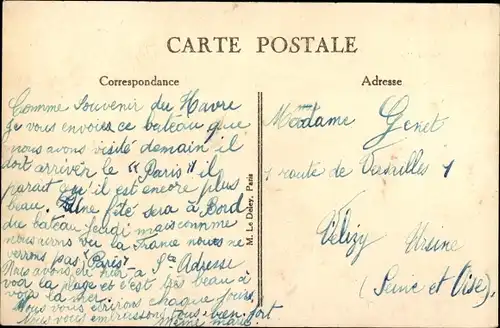 CARTE POSTALE
Correspondance
Adresse
Comme souvenir du Havre
Je vous envoies ce bateau que
nous avons visité demain il
doit arriver le "Paris" il
parait qu'il est encore plus
beau. Une fête sera à Bord
du bateau jeudi mais comme
nous avons vu la France nous ne
verrons pas "Paris"
Nous avons été hier à Ste Adresse
voir la plage et c'est très beau à
voir la mer.
Nous vous écrirons chaque jours.
Nous vous embrassons tous bien fort
M. Le Deley, Paris
Madame Genet
1 route de 1
Vélizy Ursine
(Seine et Oise).